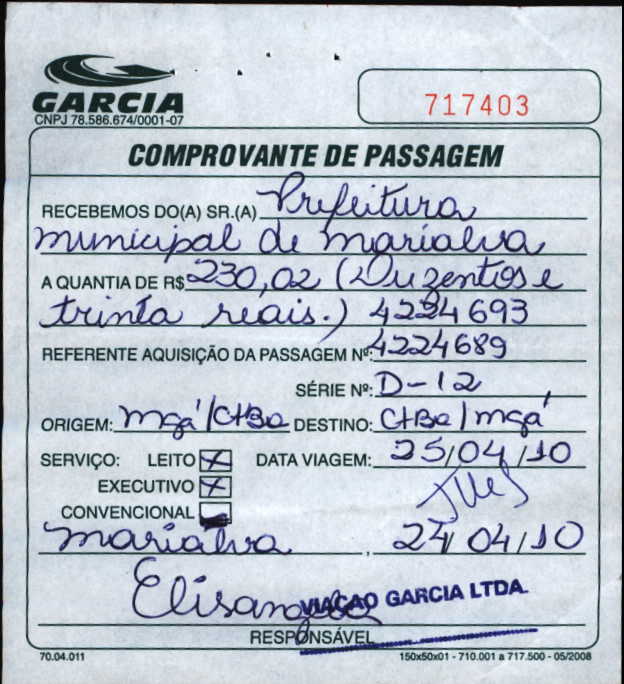 GARCIA
CNPJ 78.586.674/0001-07
717403
COMPROVANTE DE PASSAGEM
RECEBEMOS DO(A) SR.(A) Prefeitura
municipal de marialva
A QUANTIA DE R$ 230,02 (Duzentos e
trinta reais.) 4224693
REFERENTE AQUISIÇÃO DA PASSAGEM Nº: 4224689
SÉRIE Nº: D-12
ORIGEM: mgá/CtBa DESTINO: CtBa/mgá
SERVIÇO: LEITO X DATA VIAGEM: 25/04/10
EXECUTIVO X
CONVENCIONAL
marialva, 24/04/10
Elisangela VIAÇAO GARCIA LTDA.
RESPONSÁVEL
70.04.011 150x50x01 - 710.001 a 717.500 - 05/2008